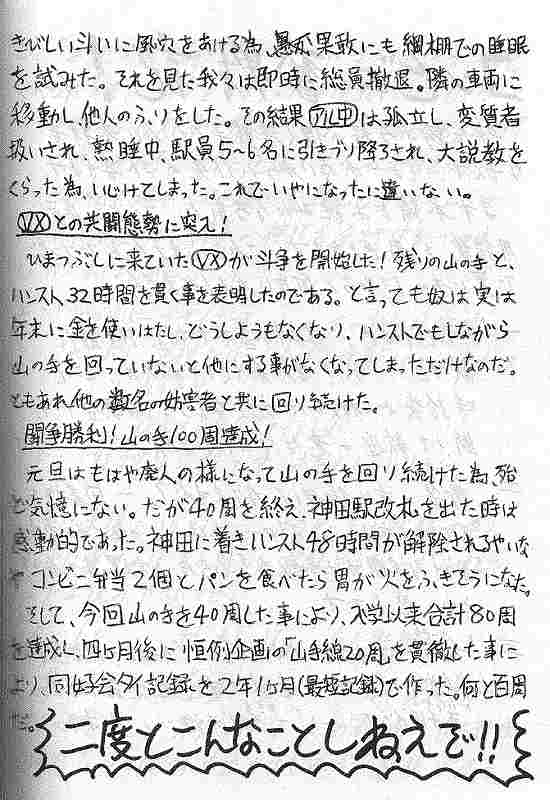 きびしい斗いに風穴をあける為、愚か果敢にも網棚での睡眠
を試みた。それを見た我々は即時に総員撤退。隣の車両に
移動し、他人のふりをした。その結果アル中は孤立し、変質者
扱いされ、熟睡中、駅員5〜6名に引きずり降ろされ、大説教を
くらった為、いじけてしまった。これでいやになったに違いない。
VXとの共闘態勢に突入!
ひまつぶしに来ていたVXが斗争を開始した!残りの山の手と、
ハンスト32時間を貫く事を表明したのである。と言っても奴は実は
年末に金を使いはたし、どうしようもなくなり、ハンストでもしながら
山の手を回っていないと他にする事がなくなってしまっただけなのだ。
ともあれ他の数名の妨害者と共に回り続けた。
闘争勝利!山の手100周達成!
元旦はもはや廃人の様になって山の手を回り続けた為、殆
ど気憶にない。だが40周を終え、神田駅改札を出た時は
感動的であった。神田に着きハンスト48時間が解除されるやいな
やコンビニ弁当2個とパンを食べたら胃が火をふきそうになった。
そして、今回山の手を40周した事により、入学以来合計80周
を達成し、四ヶ月後に恒例企画の「山手線20周」を貫徹した事に
より、同好会タイ記録を2年1ヶ月(最短記録)で作った。何と百周
だ。
二度とこんなことしねえで!!